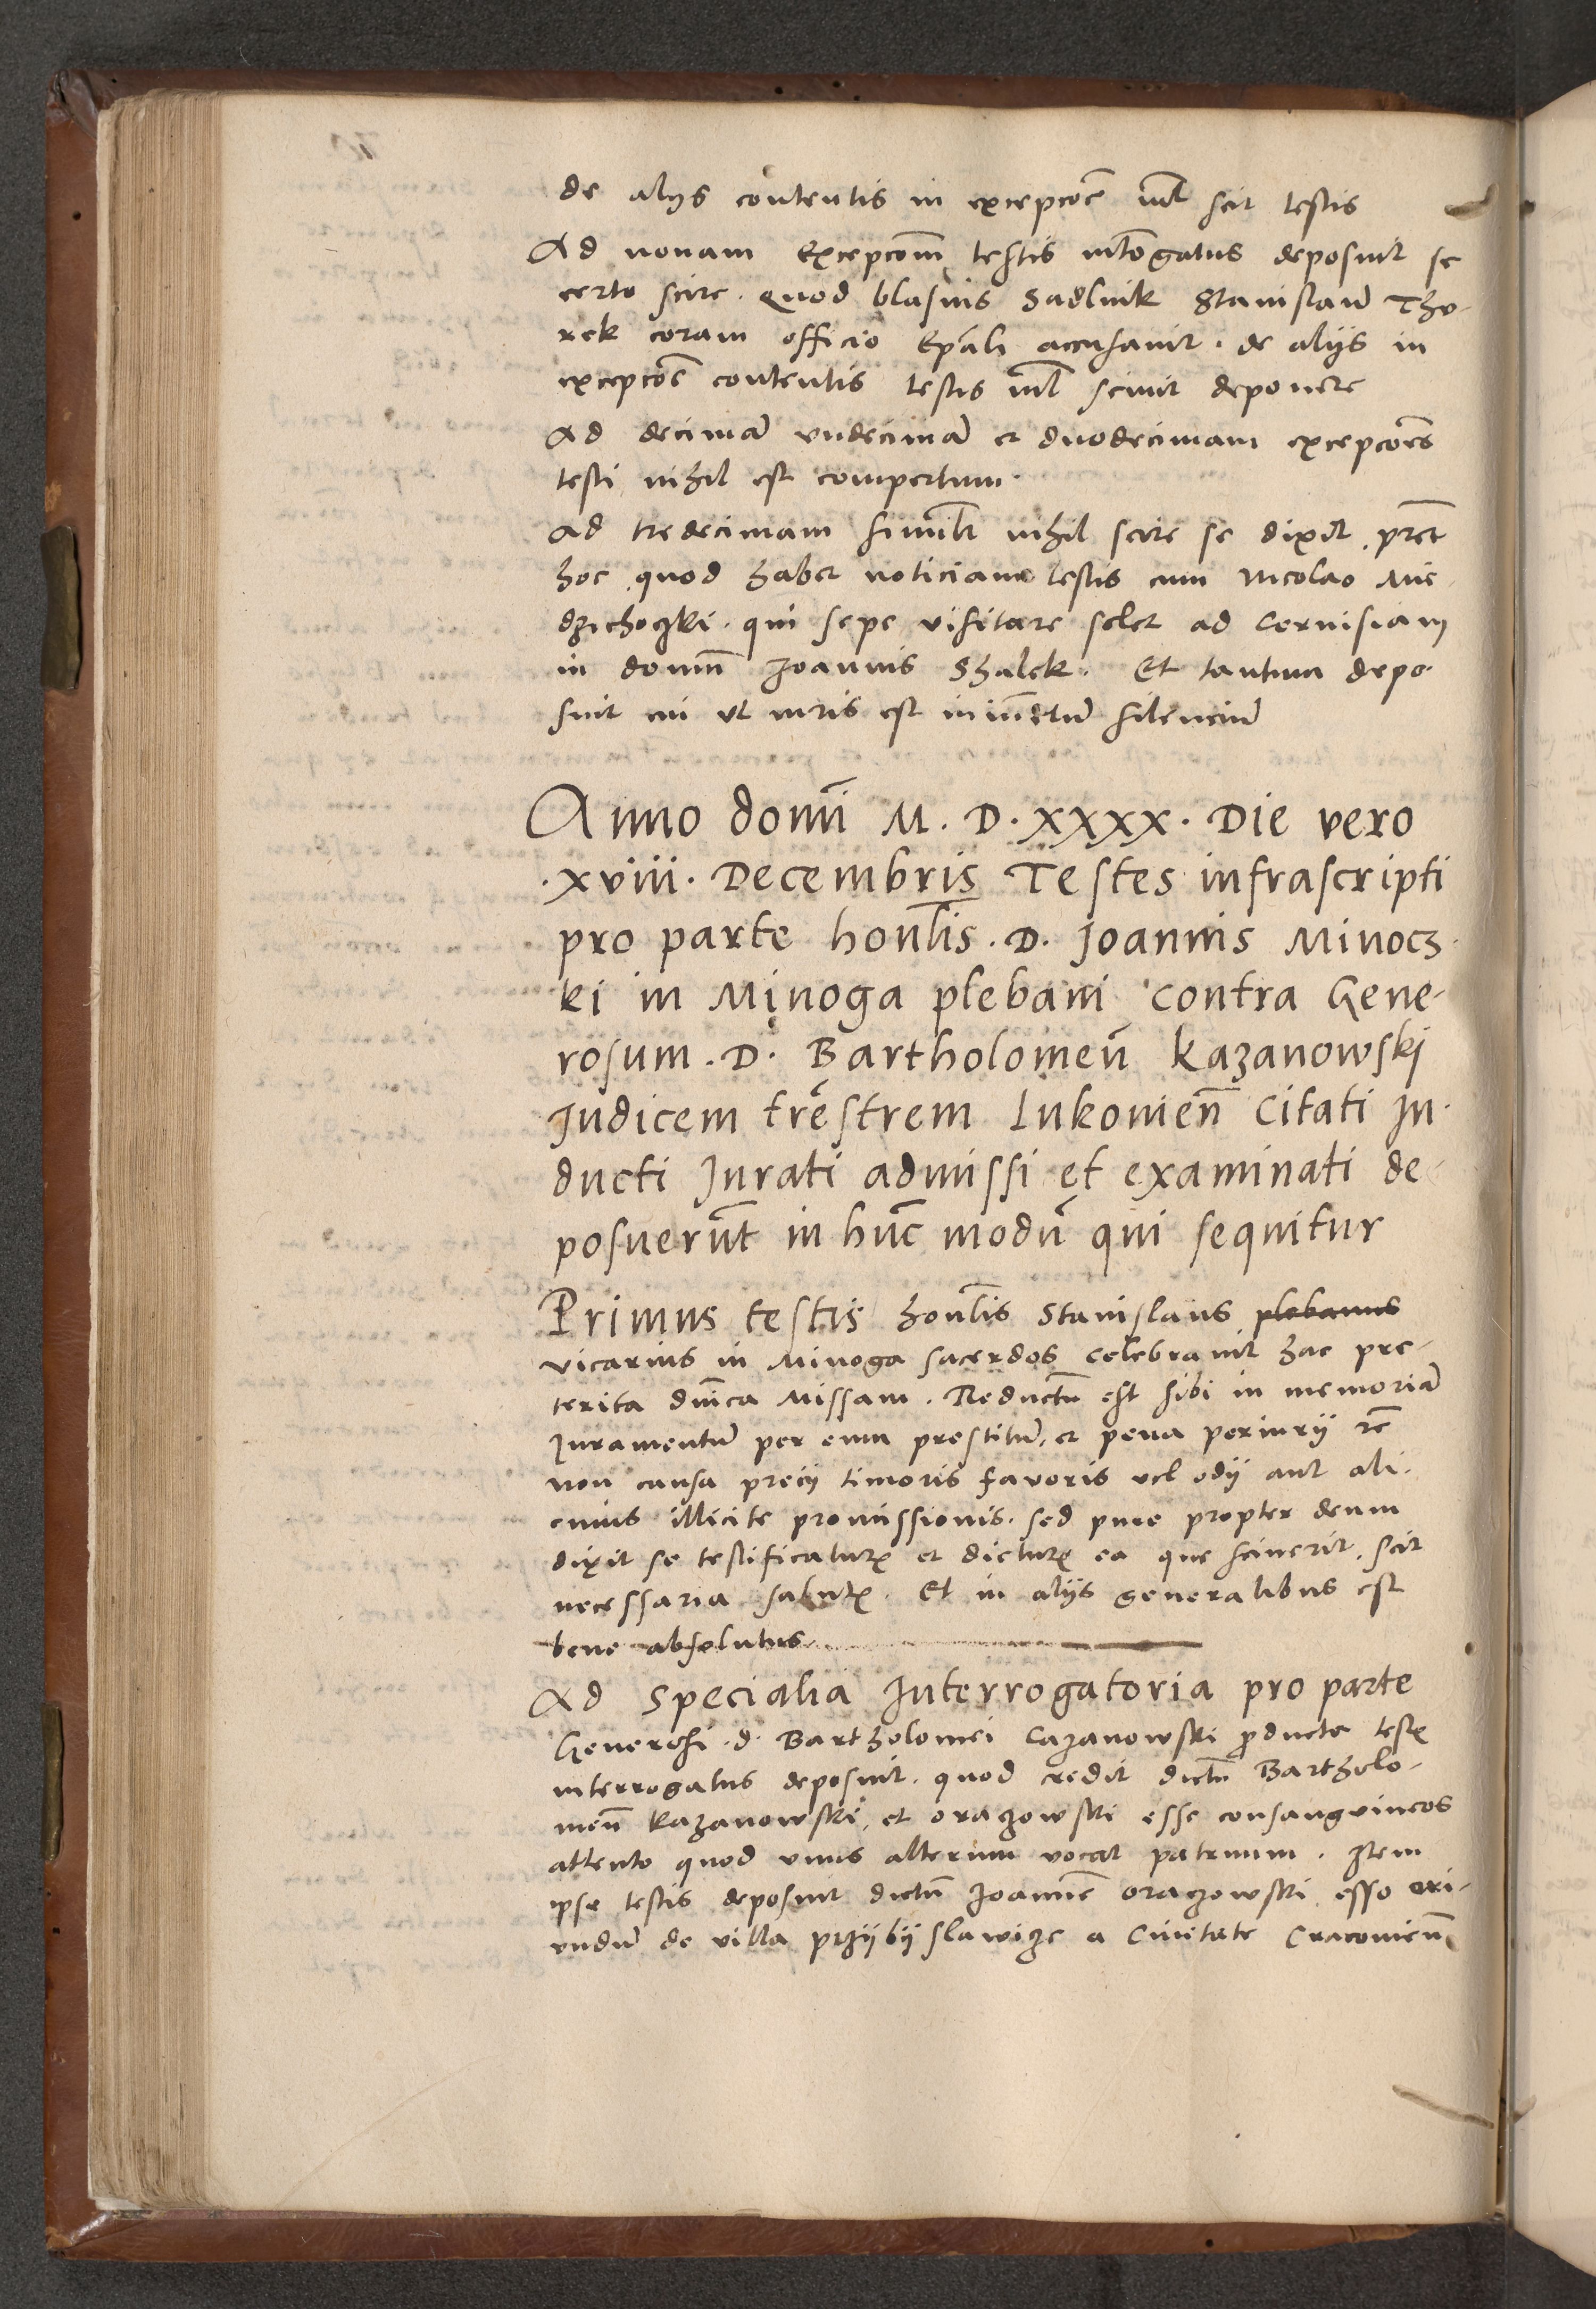 de alijs contentis in excepcoē nil scit testis
Ad nonam Excepcom̄ testis intōgatus deposuit se
certo scire. quod blasius Sadlnik Stanislaū Tho-
rek coram officio Epāli accusauit. de alijs in
excepcoē contentis testis nil sciuit deponere
Ad decimā vndecimā et duodecimam excepcoēs
testi nihil est compertum.
Ad tredecimam similr̄ nihil scire se dixit. pret̄
hoc quod habet noticiam testis cum Nicolao Mie
dzichoczki. qui sepe visitare solet ad Cervisiam
in domū Joannis Shalek. Et tantum depo
suit cui vt iuris est iniūctū silenciū
Anno domī M. D. XXXX. Die vero
.xviii. Decembris Testes infrascripti
pro parte honlīs. D. Joannis Minocz-
ki in Minoga plebani contra Gene-
rosum. D. Bartholomeū Kazanowski
Judicem trēstrem Lukovien̄ Citati In-
ducti Jurati admissi et examinati de-
posuerūt in hūc modū qui sequitur
Primus testis honlīs Stanislaus plebanus
vicarius in Minoga sacerdos celebrauit hac pre-
terita dnīca Missam. Reductū est sibi in memoriā
Juramentū per eum prestitū. et pena periurij rē
non causa precij timoris favoris vel odij aut ali-
cuius illicite promissionis. sed pure propter deum
dixit se testificaturꝫ et dicturꝫ ea que sciuerit. scit
necessaria salutꝫ. Et in alijs generalibus est
bene absolutus
Ad specialia Interrogatoria pro parte
Generosi. d. Bartholomei Cazanowski p̄ducta testꝫ
interrogatus deposuit. quod credit dictū Bartholo-
meū Kazanowski et oraczowski esse consangvineos
attento quod vnus alterum vocat patruum. Item
ipse testis deposuit dictū Joannē oraczowski esse ori-
vndū de villa przijbijslawicze a Ciuitate Cracovien̄